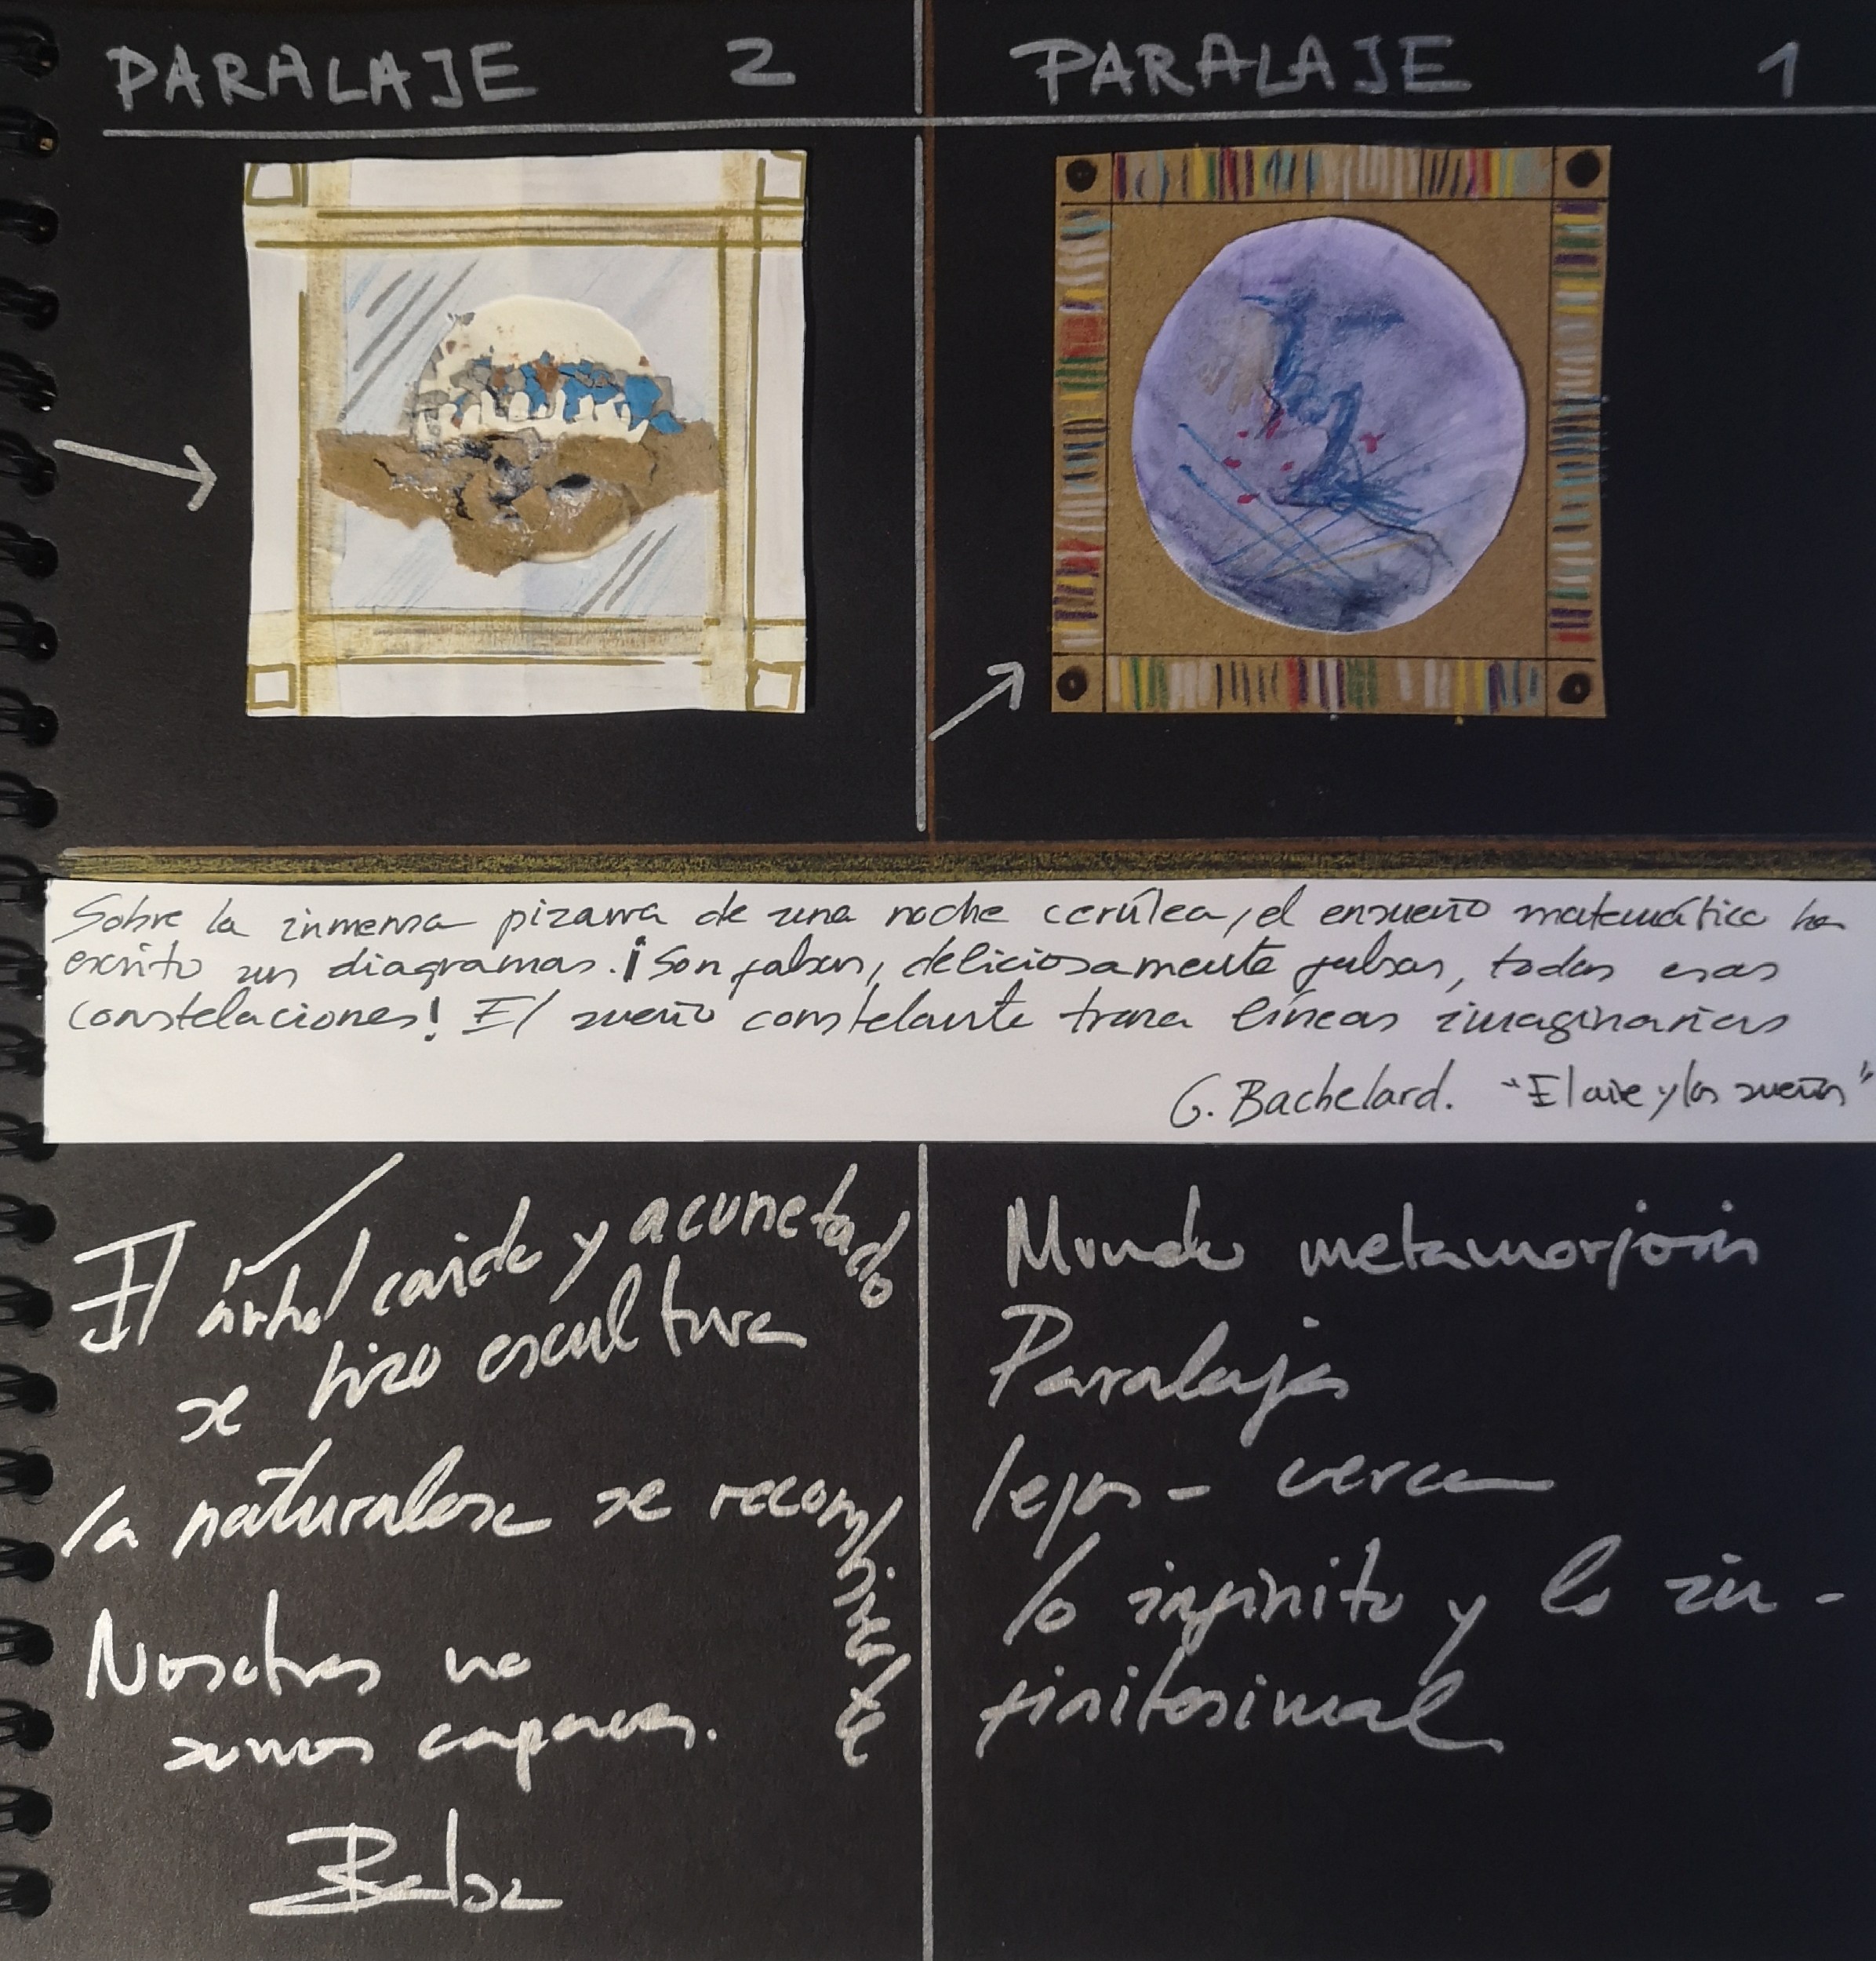 PARALAJE 2
PARALAJE 1
Sobre la inmensa pizarra de una noche cerúlea, el ensueño matemático ha
escrito sus diagramas. ¡Son falsas, deliciosamente falsas, todas esas
constelaciones! El sueño constelante traza líneas imaginarias
G. Bachelard. "El aire y los sueños"
El árbol caído y
se hizo escultura
la naturaleza se reconvierte
Nosotros no
somos capaces.
Mundo metamorfosis
Paralaje
lejos - cerca
lo infinito y lo in-
finitesimal